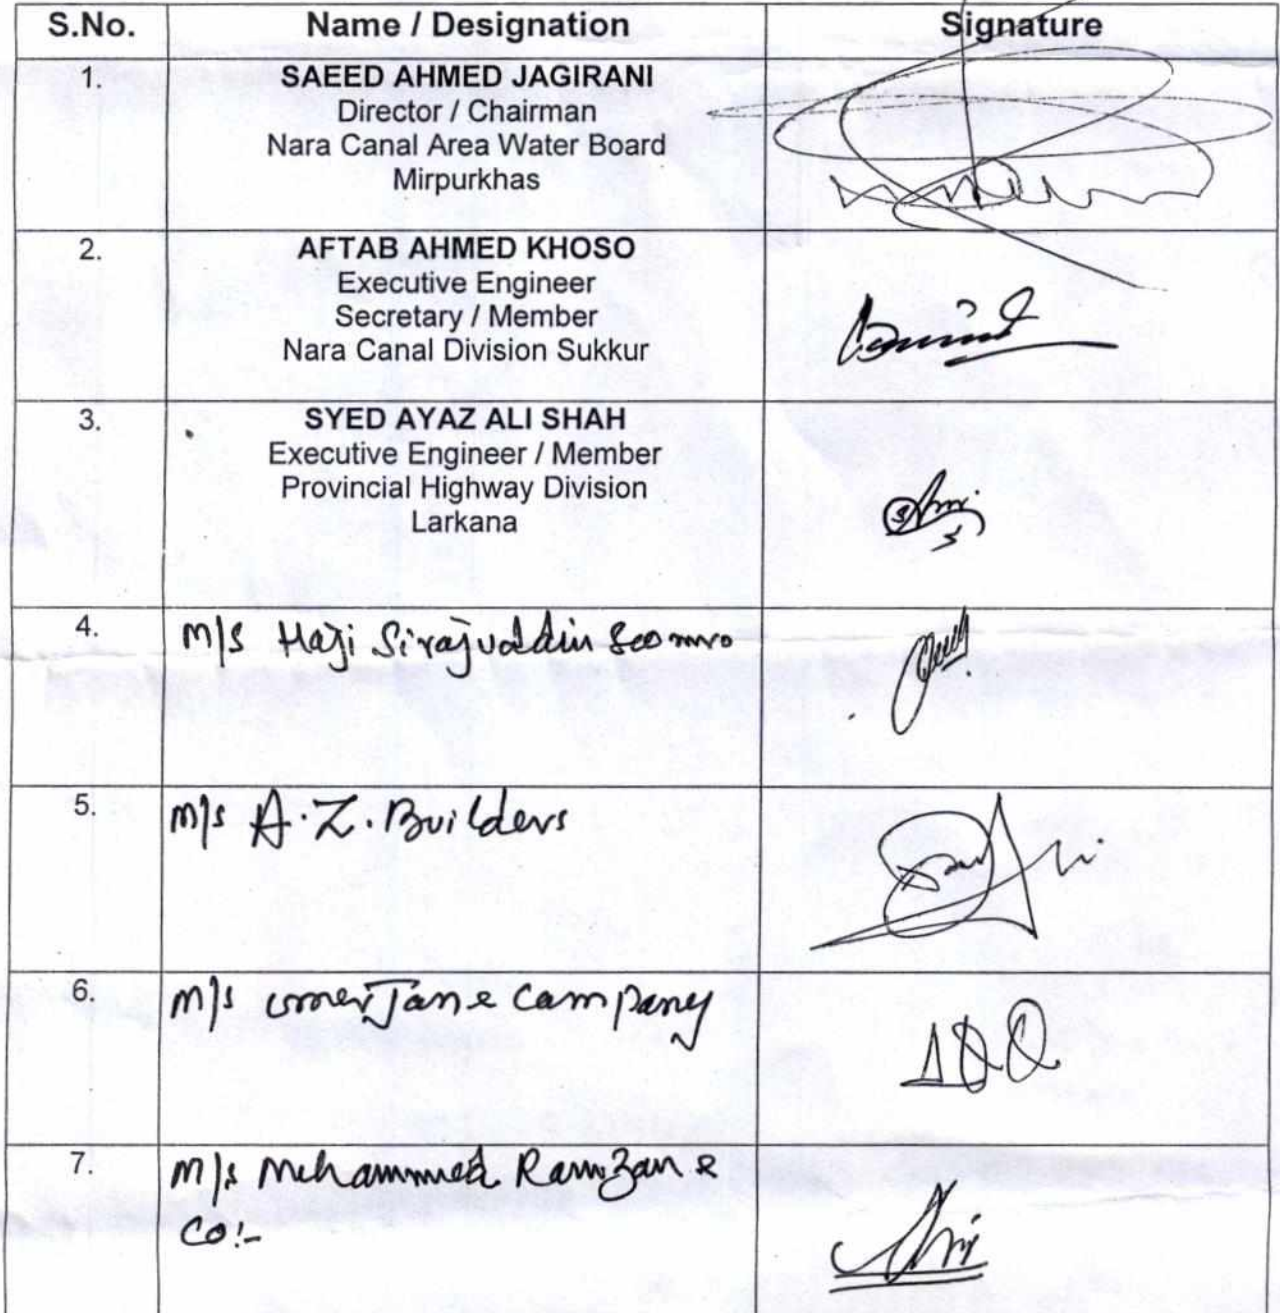 S.No. Name / Designation Signature
1. SAEED AHMED JAGIRANI
Director / Chairman
Nara Canal Area Water Board
Mirpurkhas
2. AFTAB AHMED KHOSO
Executive Engineer
Secretary / Member
Nara Canal Division Sukkur
3. SYED AYAZ ALI SHAH
Executive Engineer / Member
Provincial Highway Division
Larkana
4. M/S Haji Sirajuddin Soomro
5. M/S A.Z. Builders
6. M/S Umer Jan & Company
7. M/S Muhammed Ramzan &
CO:-